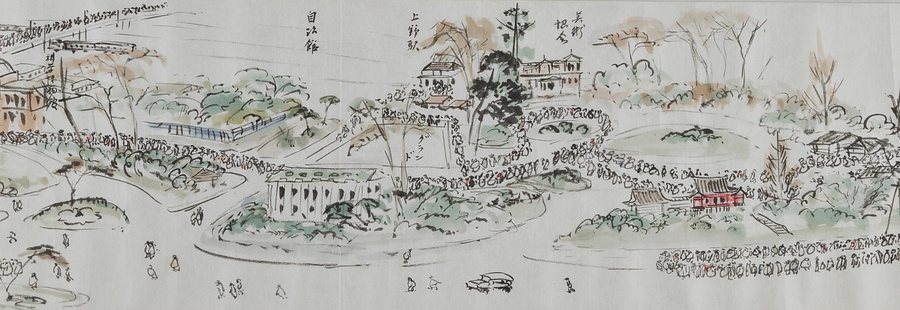 美術
協会
上野駅
グランド
自治館